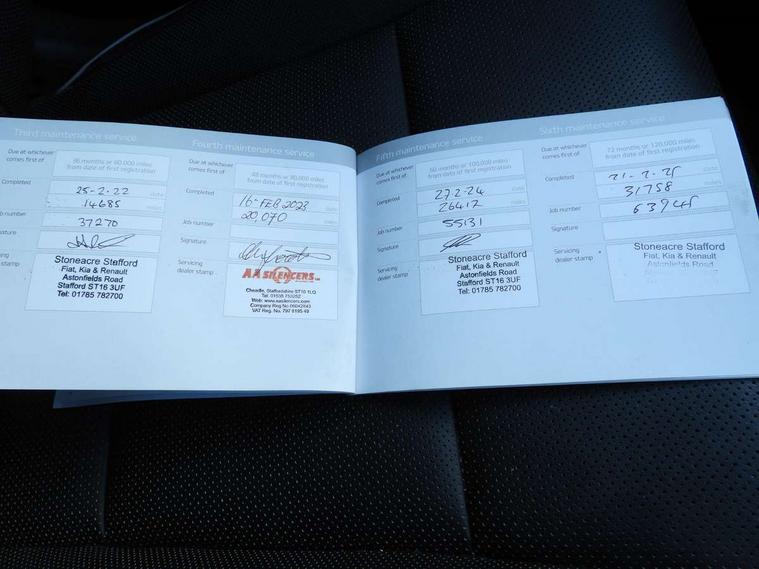 Third maintenance service
Due at whichever
comes first of
36 months or 60,000 miles
from date of first registration
Completed
25-2-22
date
14685
miles
Job number
37270
Signature
Servicing
dealer stamp
Stoneacre Stafford
Fiat, Kia & Renault
Astonfields Road
Stafford ST16 3UF
Tel: 01785 782700
Fourth maintenance service
Due at whichever
comes first of
48 months or 80,000 miles
from date of first registration
Completed
16-FEB 2023
date
20,070
miles
Job number
Signature
Servicing
dealer stamp
AA SILENCERS
Cheadle, Staffordshire ST10 1LQ
Web: www.aasilencers.com
Fifth maintenance service
Due at whichever
comes first of
60 months or 100,000 miles
from date of first registration
Completed
27.2.24
date
26412
miles
Job number
55131
Signature
Servicing
dealer stamp
Stoneacre Stafford
Fiat, Kia & Renault
Astonfields Road
Stafford ST16 3UF
Tel: 01785 782700
Sixth maintenance service
Due at whichever
comes first of
72 months or 120,000 miles
from date of first registration
Completed
date
31758
miles
Job number
Signature
Servicing
dealer stamp
Stoneacre Stafford
Fiat, Kia & Renault
Astonfields Road